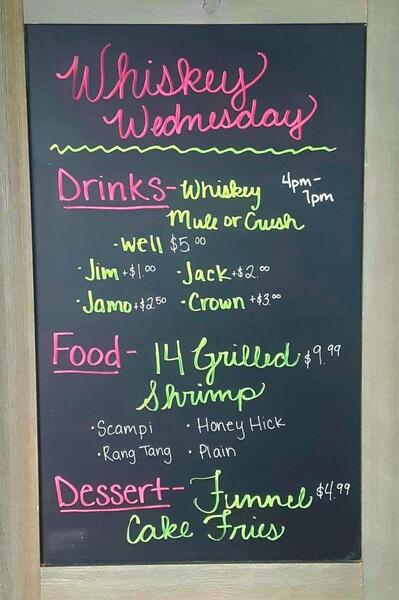 Whiskey
Wednesday
Drinks- Whiskey 4pm-
7pm
Mule or Crush
-Well $5.00
·Jim +$1.00 ·Jack +$2.00
·Jamo +$2.50 ·Crown +$3.00
Food- 14 Grilled $9.99
Shrimp
·Scampi ·Honey Hick
·Rang Tang ·Plain
Dessert- Funnel $4.99
Cake Fries